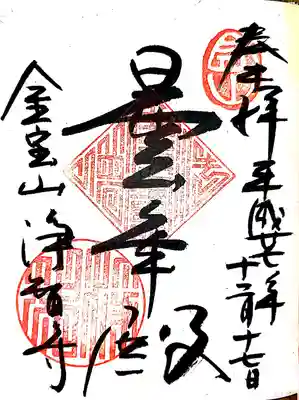 奉拝 平成廿七年
十二月十七日
曇華殿
金宝山 浄智寺